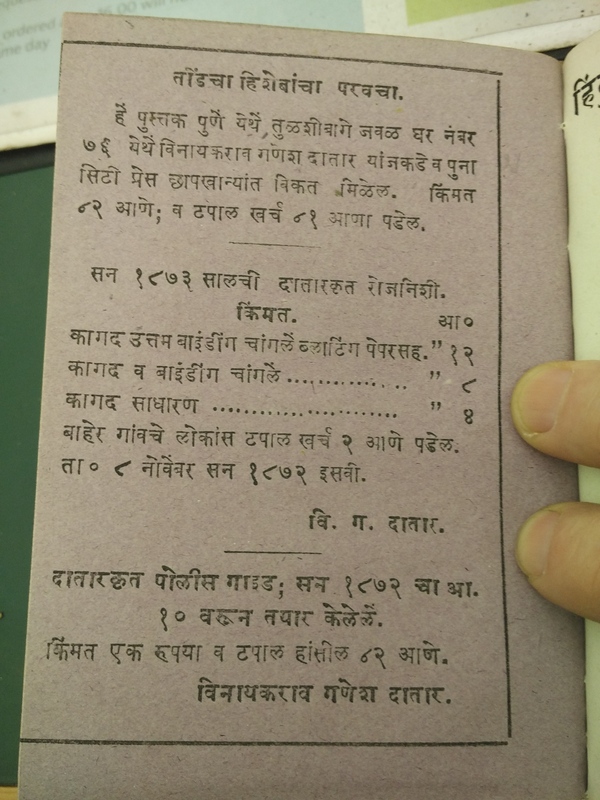 तोंडचा हिशेबांचा परवचा.
हें पुस्तक पुणें येथें, तुळशीबागे जवळ घर नंबर
७६ येथें विनायकराव गणेश दातार यांजकडे व पुना
सिटी प्रेस छापखान्यांत विकत मिळेल. किंमत
८२ आणे; व टपाल खर्च ८१ आणा पडेल.
सन १८७३ सालची दातारकृत रोजनिशी.
किंमत. आ०
कागद उत्तम बाइंडींग चांगलें ब्लाटिंग पेपरसह. ” १२
कागद व बाइंडींग चांगलें .............. ” ८
कागद साधारण ........................ ” ४
बाहेर गांवचे लोकांस टपाल खर्च २ आणे पडेल.
ता० ८ नोवेंबर सन १८७२ इसवी.
वि. ग. दातार.
दातारकृत पोलीस गाइड; सन १८७२ चा आ.
१० वरून तयार केलेलें.
किंमत एक रुपया व टपाल हांसील ८२ आणे.
विनायकराव गणेश दातार.